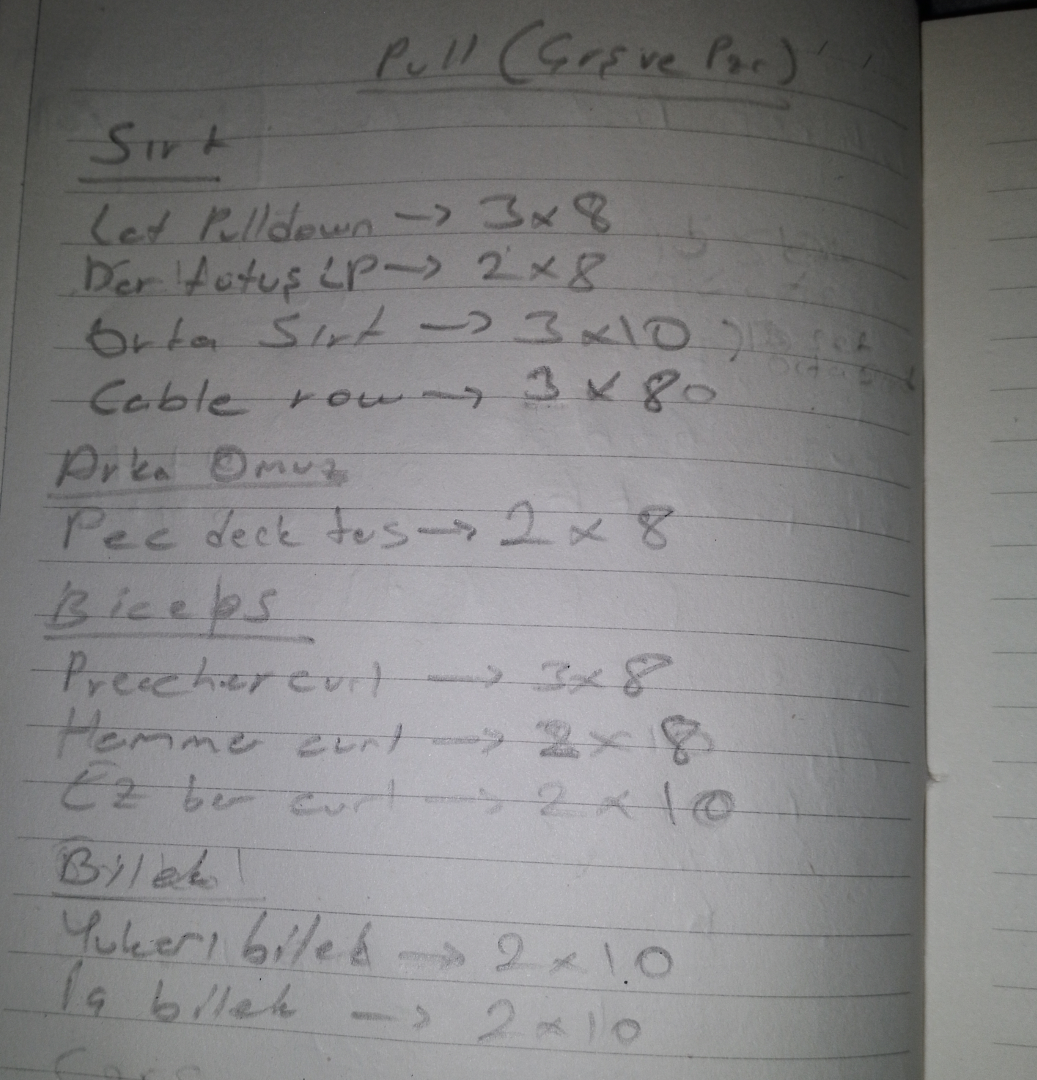 Pull (
Sırt
Lat Pulldown -> 3x8
Dar tutuş LP -> 2x8
Orta Sırt -> 3x10
Cable row -> 3x80
Arka Omuz
Pec deck ters -> 2x8
Biceps
Preacher curl -> 3x8
Hammer curl -> 2x8
Ez bar curl -> 2x10
Bilek
Yukarı bilek -> 2x10
İç bilek -> 2x10